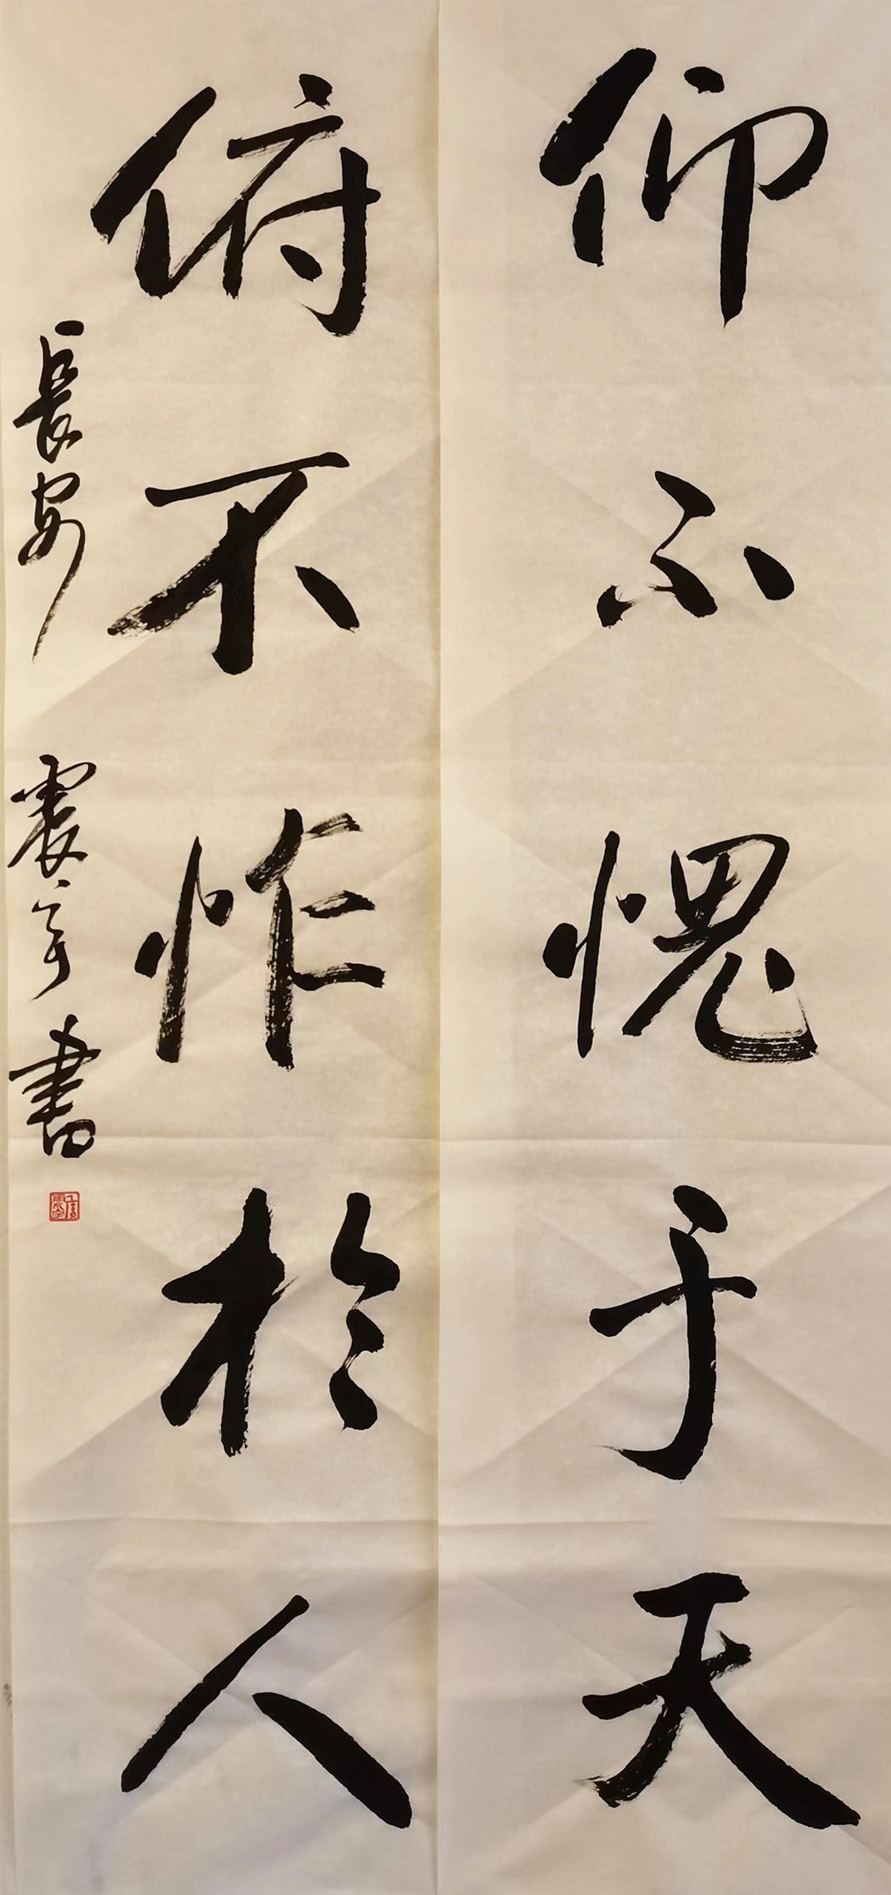 仰不愧于天
俯不怍於人
長安 震宇書